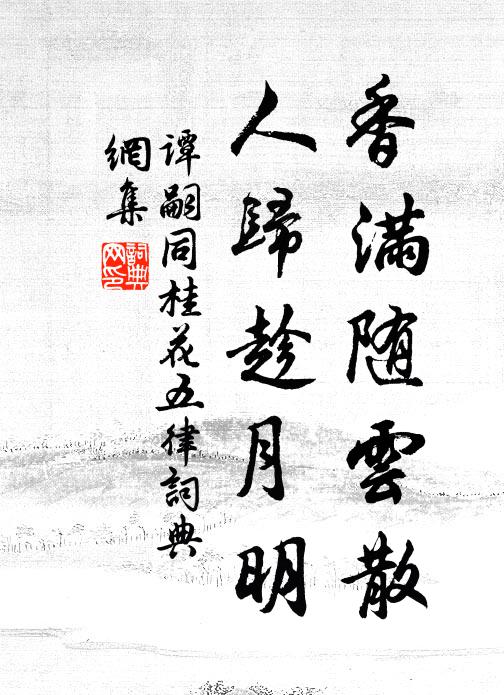 香滿随雲散
人歸趁月明
谭嗣同桂花五律詞典
網集
詞典
网印